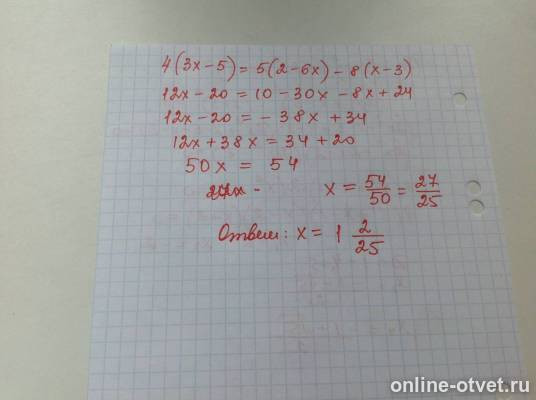 4(3x-5) = 5(2-6x) - 8(x-3)
12x - 20 = 10 - 30x - 8x + 24
12x - 20 = - 38x + 34
12x + 38x = 34 + 20
50x = 54
x = 54/50 = 27/25
Ответ: x = 1 2/25
online-otvet.ru